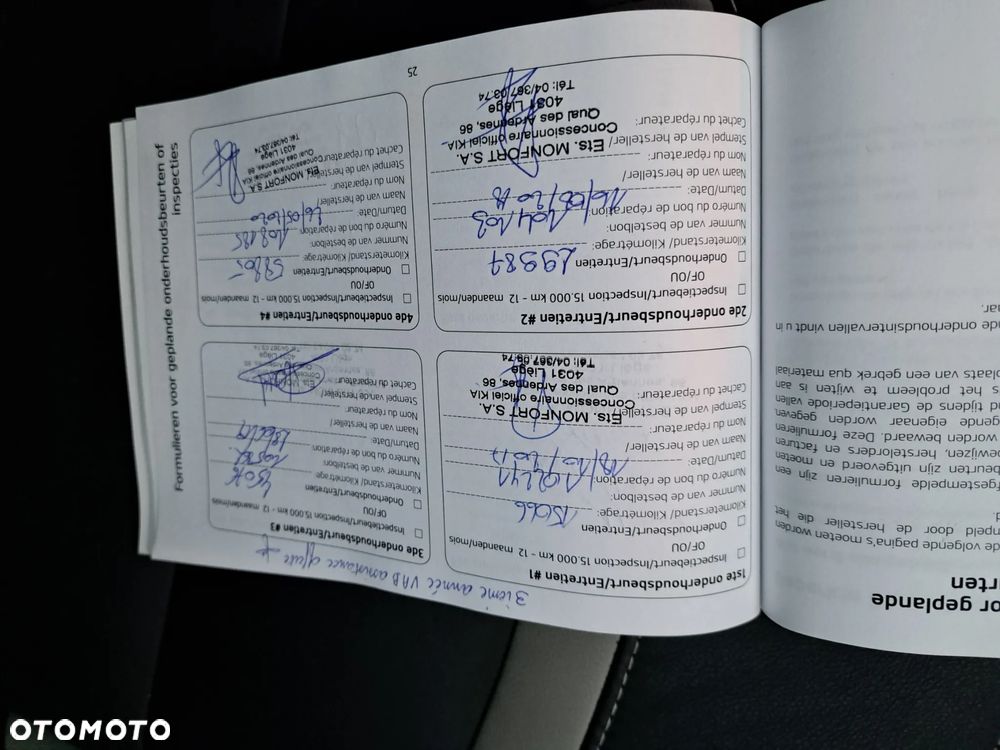 Formulieren voor geplande onderhoudsbeurten of
inspecties
3ième année VAB
1ste onderhoudsbeurt/Entretien #1
Inspectiebeurt/Inspection 15.000 km - 12 maanden/mois
OF/OU
Onderhoudsbeurt/Entretien
Kilometerstand/ Kilométrage:
Nummer van de bestelbon:
Numéro du bon de réparation:
Datum/Date:
Naam van de hersteller/
Nom du réparateur:
Stempel van de hersteller/
Cachet du réparateur:
Ets. MONFORT S.A.
Concessionnaire officiel KIA
Quai des Ardennes, 86
4031 Liège
Tél: 04/367.03.74
2de onderhoudsbeurt/Entretien #2
Inspectiebeurt/Inspection 15.000 km - 12 maanden/mois
OF/OU
Onderhoudsbeurt/Entretien
29987
Kilometerstand/ Kilométrage:
Nummer van de bestelbon:
Numéro du bon de réparation:
104103
Datum/Date:
Naam van de hersteller/
Nom du réparateur:
Stempel van de hersteller/
Cachet du réparateur:
Ets. MONFORT S.A.
Concessionnaire officiel KIA
Quai des Ardennes, 86
4031 Liège
Tél: 04/367.03.74
3de onderhoudsbeurt/Entretien #3
Inspectiebeurt/Inspection 15.000 km - 12 maanden/mois
OF/OU
Onderhoudsbeurt/Entretien
Kilometerstand/ Kilométrage:
Nummer van de bestelbon:
Numéro du bon de réparation:
Datum/Date:
Naam van de hersteller/
Nom du réparateur:
Stempel van de hersteller/
Cachet du réparateur:
4031 Liège
4de onderhoudsbeurt/Entretien #4
Inspectiebeurt/Inspection 15.000 km - 12 maanden/mois
OF/OU
Onderhoudsbeurt/Entretien
Kilometerstand/ Kilométrage:
Nummer van de bestelbon:
Numéro du bon de réparation:
108185
Datum/Date:
26/05/2020
Naam van de hersteller/
Nom du réparateur:
Stempel van de hersteller/
Cachet du réparateur:
Ets. MONFORT S.A.
Concessionnaire officiel KIA
Quai des Ardennes, 86
4031 Liège
Tél: 04/367.03.74
25
or geplande
rten
de volgende pagina's moeten worden
npeld door de hersteller die het
d.
fgestempelde formulieren zijn een
beurten zijn uitgevoerd en moeten
bewijzen, herstelorders en facturen
worden bewaard. Deze formulieren
gende eigenaar worden gegeven
nd tijdens de Garantieperiode vallen
s het probleem te wijten is aan
plaats van een gebrek qua materiaal
nde onderhoudsintervallen vindt u in
aar.
OTOMOTO